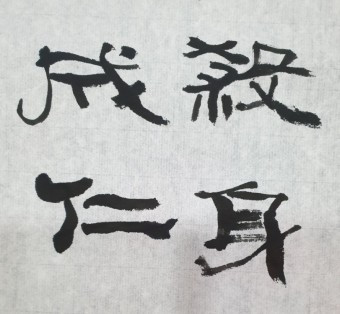 殺身
成仁